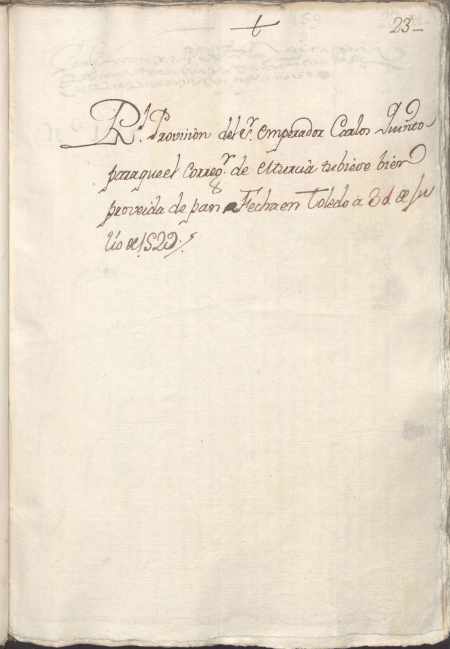 23
Rl. Provision del Sr. Emperador Carlos Quinto
para que el Corregr. de Murcia tubiese bien
proveida de pan Fecha en Toledo a 3 de Ju
lio de 1529.